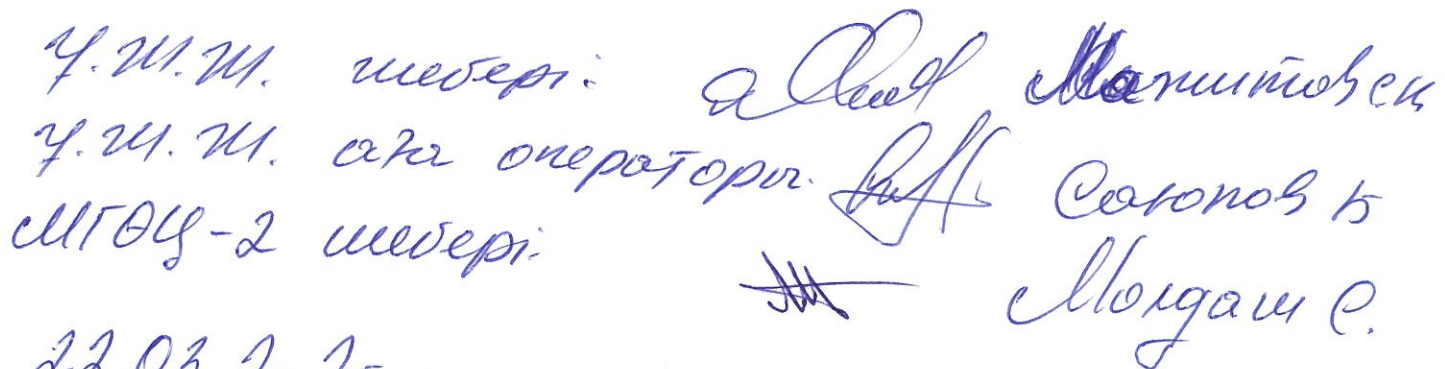 Ұ.Ж.Ж. шебері: Мажитов
Ұ.Ж.Ж. аға операторы. Саюпов Б
МГӨЦ-2 шебері. Молдаш С.
22.03.2